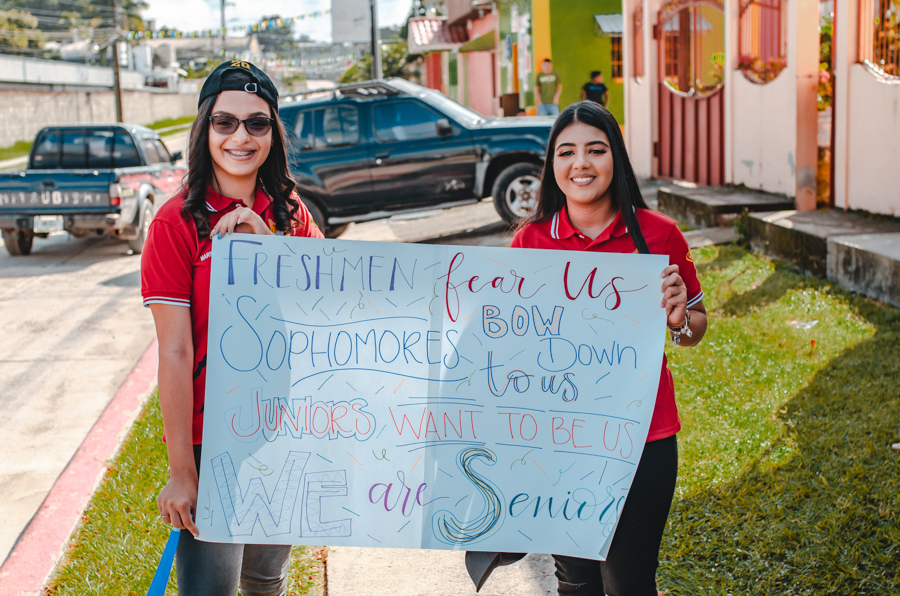 20
FRESHMEN fear Us
SOPHOMORES BOW Down
to us
JUNIORS WANT TO BE US
WE are Seniors
MITSUBISHI